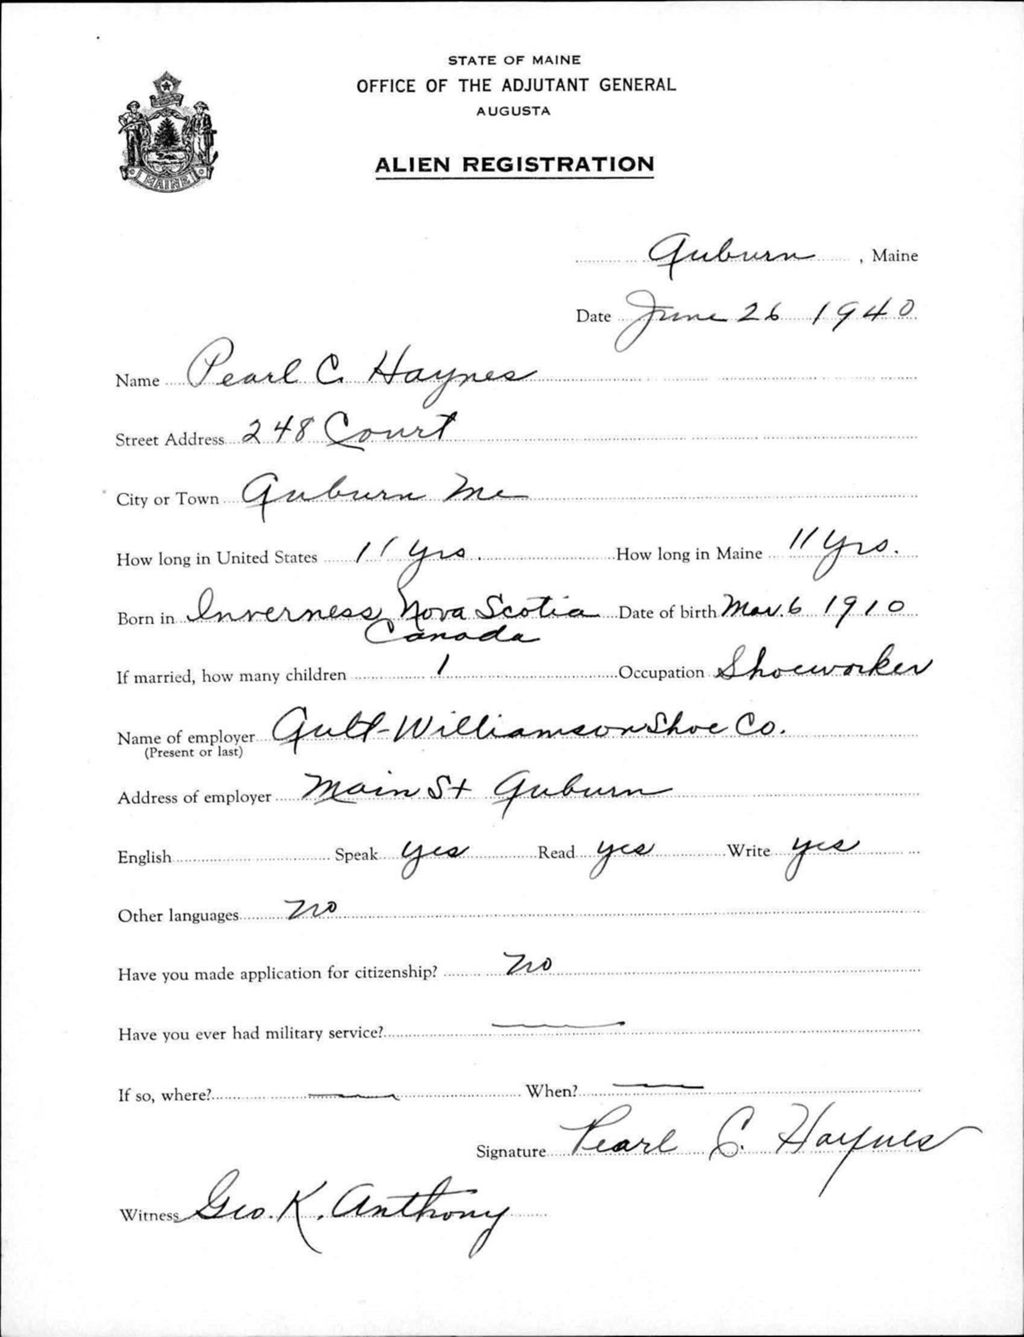 STATE OF MAINE
OFFICE OF THE ADJUTANT GENERAL
AUGUSTA
ALIEN REGISTRATION
MAINE
Auburn, Maine
Date June 26 1940
Name Pearl C. Haynes
Street Address 248 Court
City or Town Auburn Me
How long in United States 11 yrs. How long in Maine 11 yrs.
Born in Inverness, Nova Scotia Date of birth Mar. 6 1910
Canada
If married, how many children 1 Occupation Shoeworker
Name of employer Williamson Shoe Co.
(Present or last)
Address of employer Main St Auburn
English Speak yes Read yes Write yes
Other languages no
Have you made application for citizenship? no
Have you ever had military service? —
If so, where? — When? —
Signature Pearl C. Haynes
Witness Geo. K. Anthony